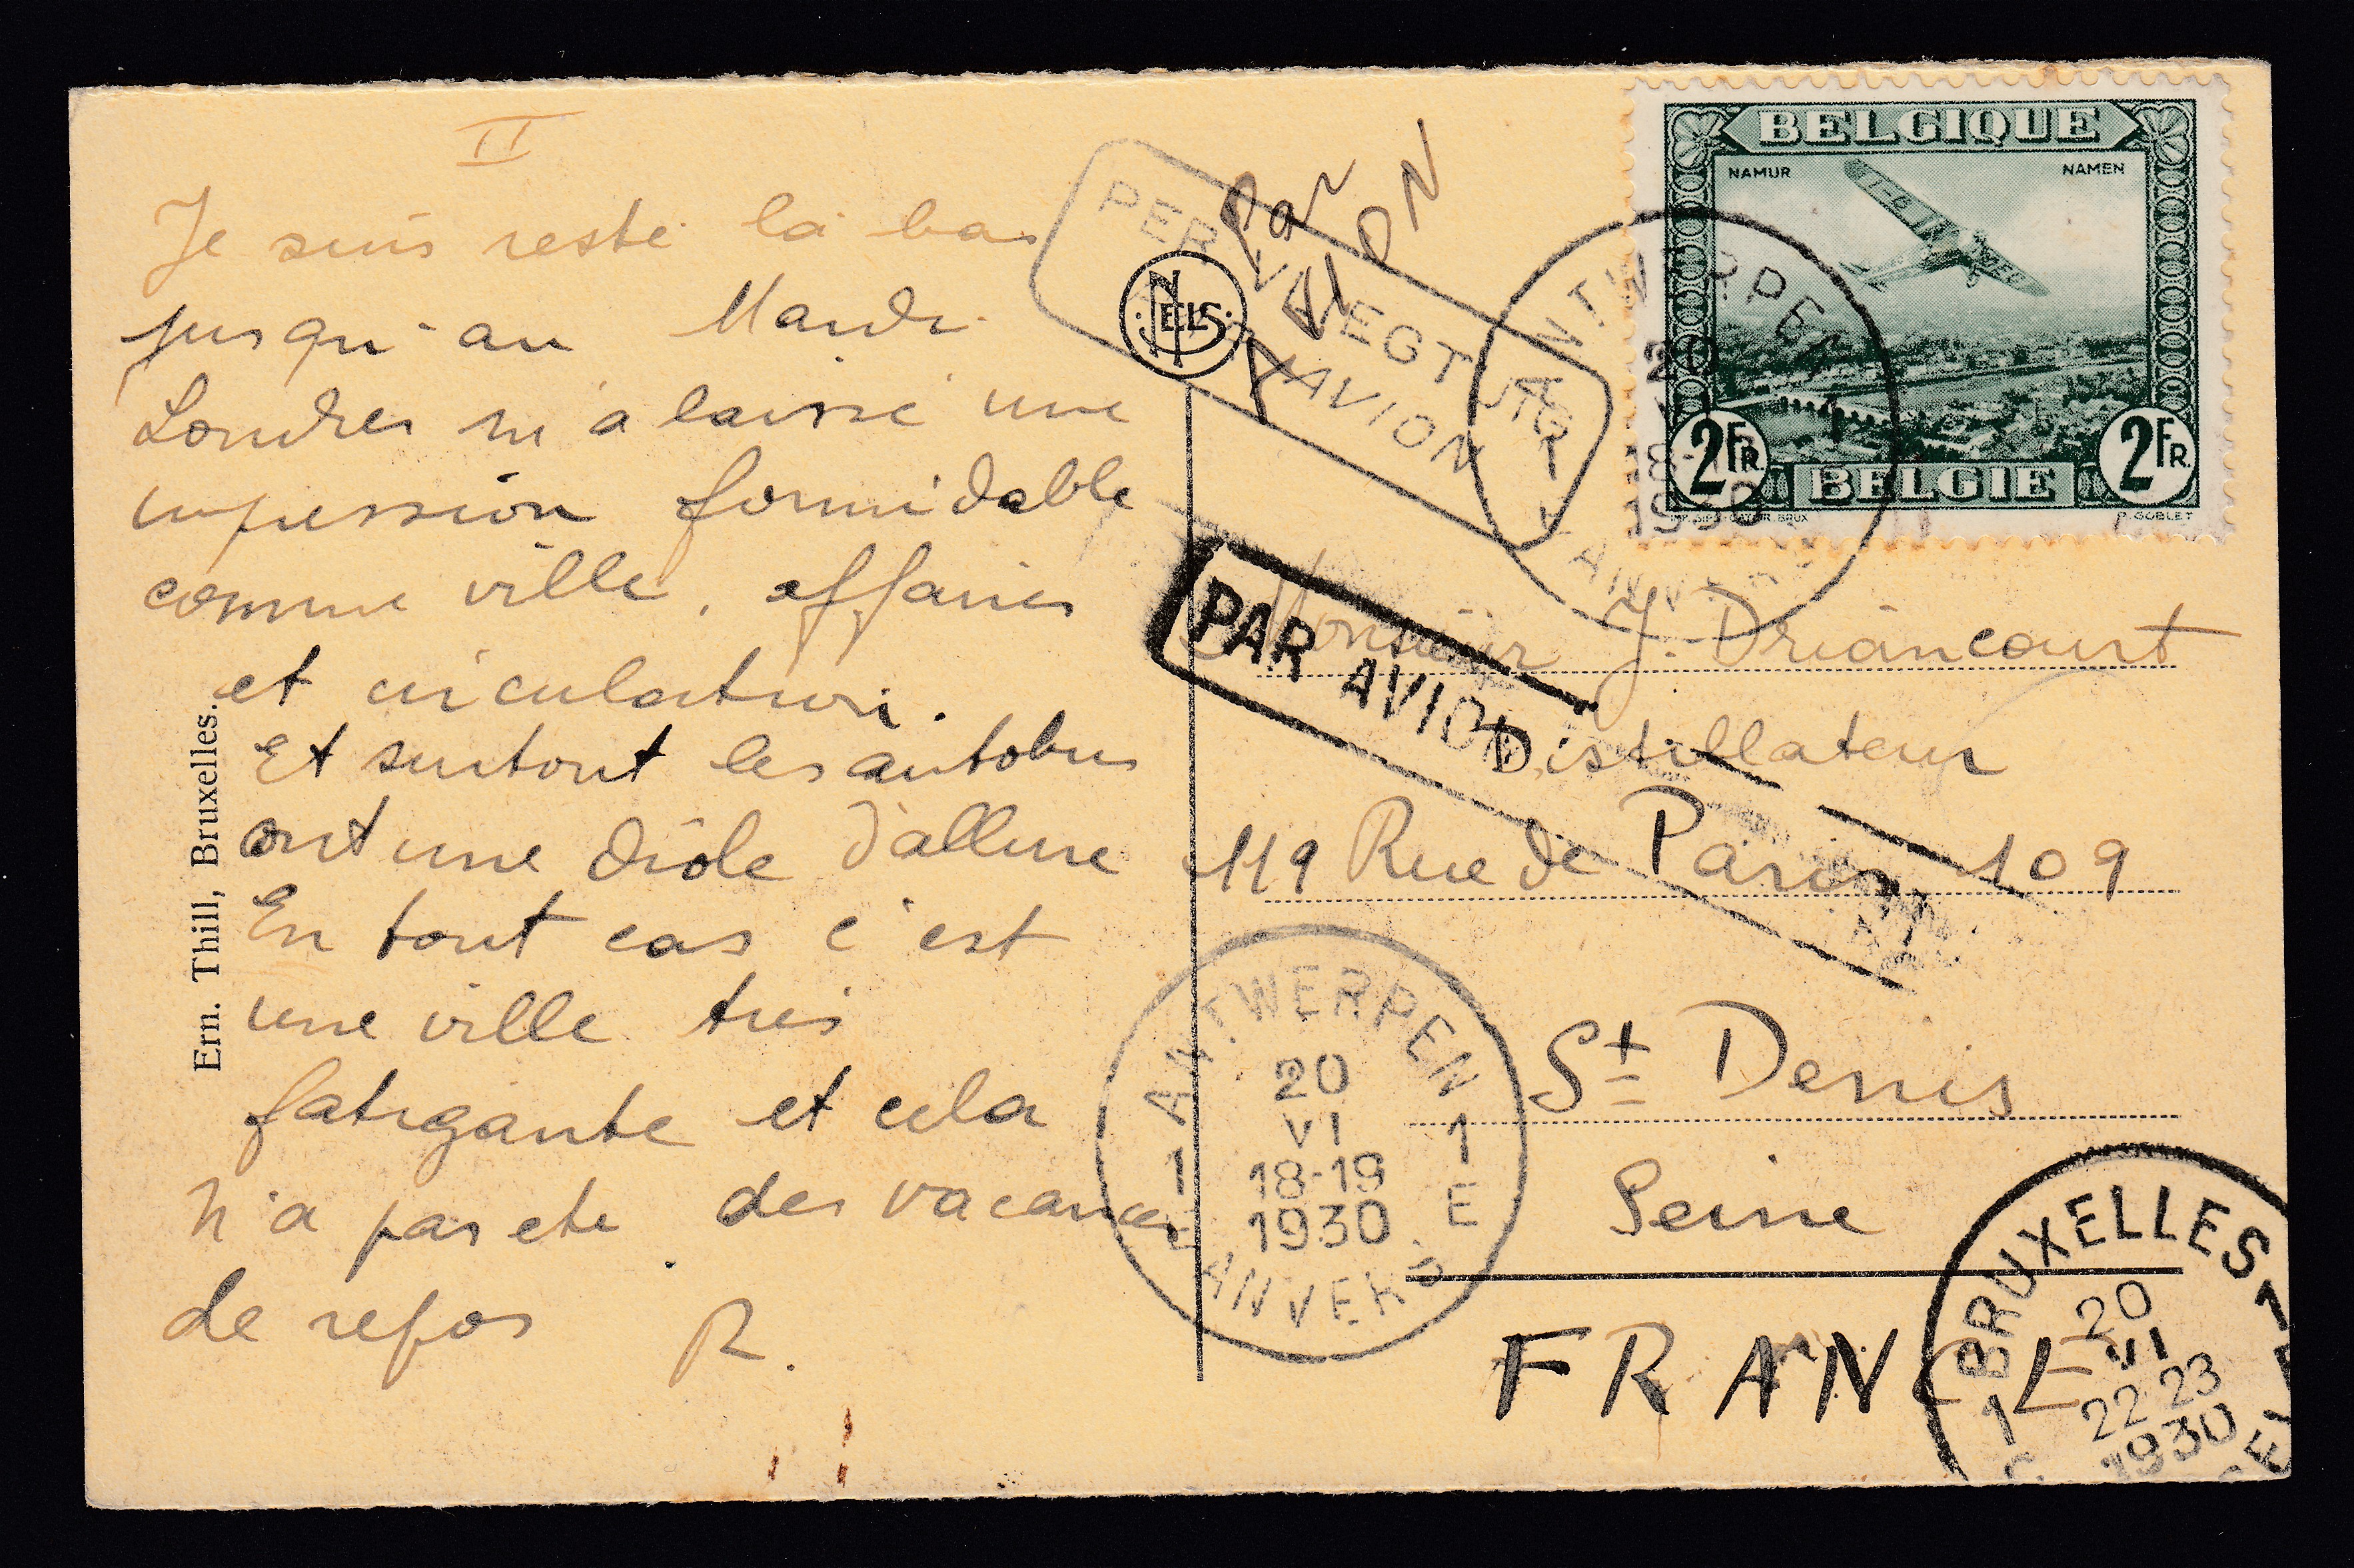 II
Je suis resté là bas
jusqu'au Mardi.
Londres m'a laissé une
impression formidable
comme ville, affaires
et circulation.
Et surtout les autobus
ont une drôle d'allure
En tout cas c'est
une ville très
fatigante et cela
n'a pas été des vacances
de repos R.
Ern. Thill, Bruxelles.
NELS
Par
AVION
PER VLIEGTUIG
PAR AVION
BELGIQUE
NAMUR NAMEN
2 FR. 2 FR.
BELGIE
P. GOBLET
ANTWERPEN
20
1 1
1930
ANVERS
PAR AVION
Monsieur J. Driancourt
Distillateur
119 Rue de Paris 109
St Denis
Seine
FRANCE
ANTWERPEN
20
VI
1 18-19 1
E 1930 E
ANVERS
BRUXELLES
20
VI
1 22-23 1
1930